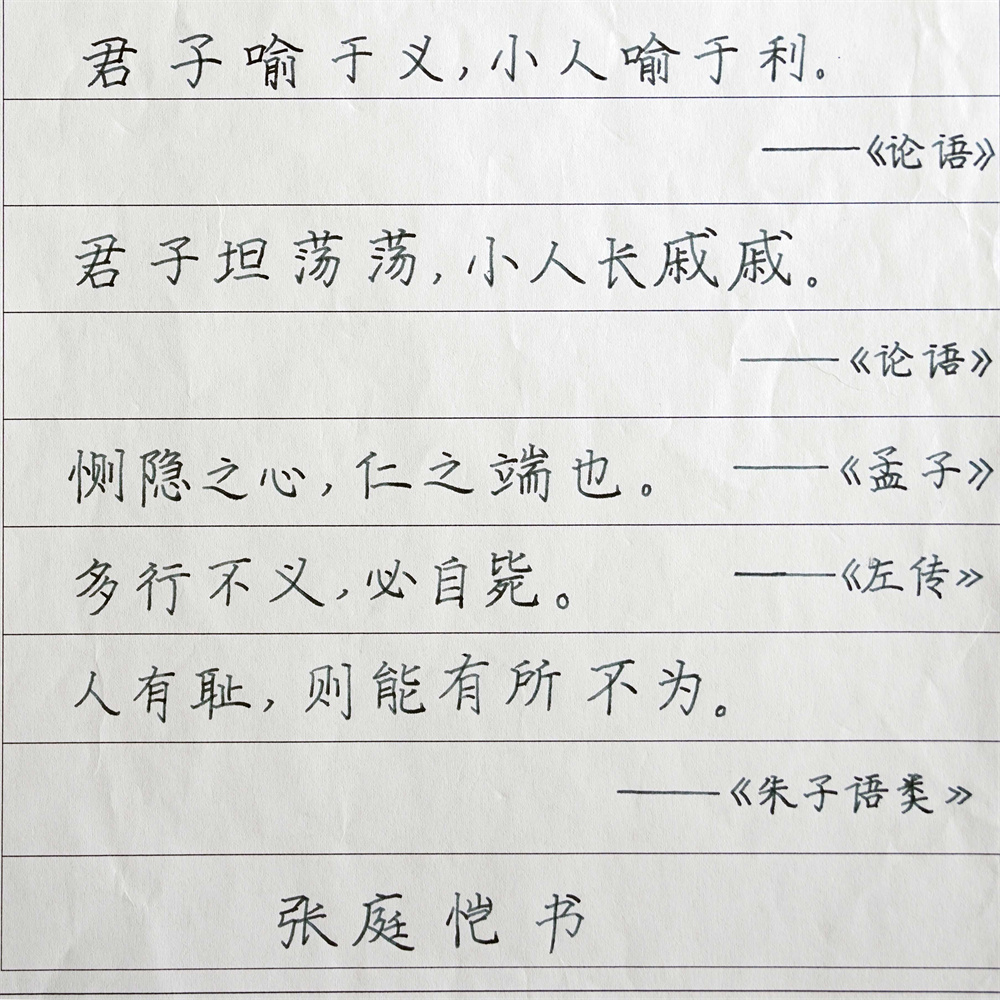 君子喻于义,小人喻于利。
——《论语》
君子坦荡荡,小人长戚戚。
——《论语》
恻隐之心,仁之端也。——《孟子》
多行不义,必自毙。——《左传》
人有耻,则能有所不为。
——《朱子语类》
张庭恺书